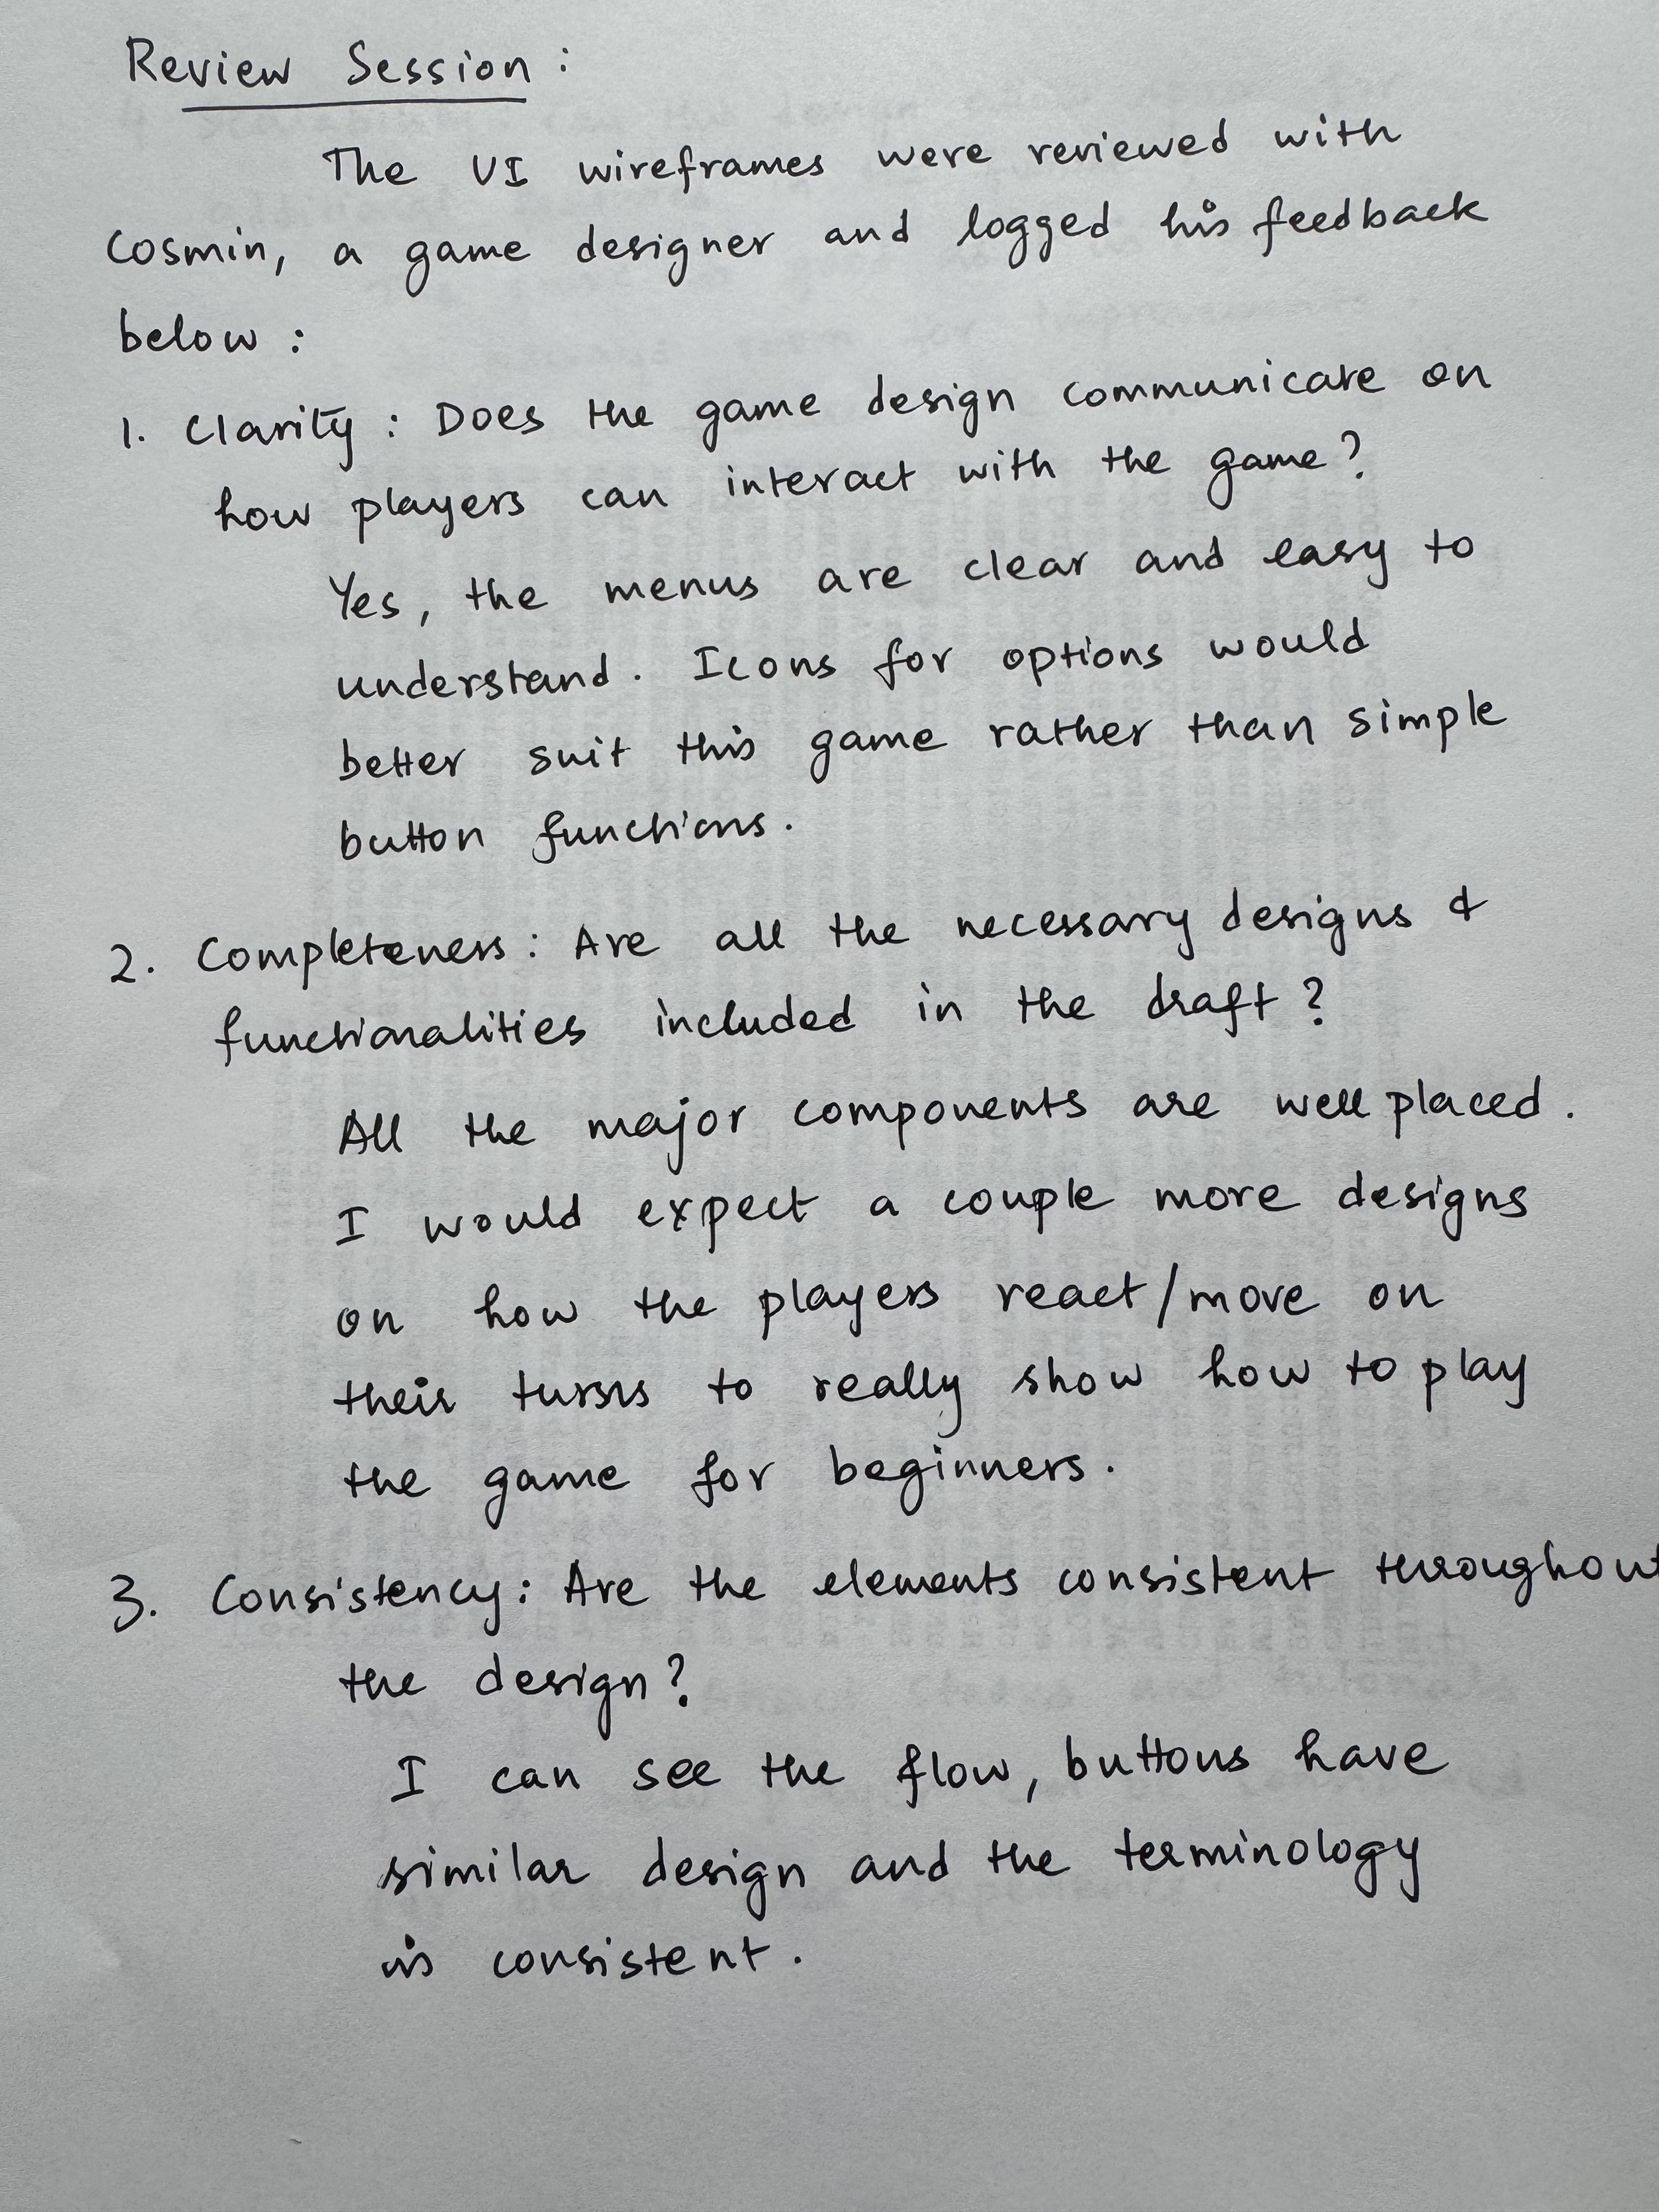 Review Session :
The UI wireframes were reviewed with
Cosmin, a game designer and logged his feedback
below :
1. Clarity : Does the game design communicate on
how players can interact with the game?
Yes, the menus are clear and easy to
understand. Icons for options would
better suit this game rather than simple
button functions.
2. Completeness : Are all the necessary designs &
functionalities included in the draft ?
All the major components are well placed.
I would expect a couple more designs
on how the players react/move on
their turns to really show how to play
the game for beginners.
3. Consistency : Are the elements consistent throughout
the design?
I can see the flow, buttons have
similar design and the terminology
is consistent.